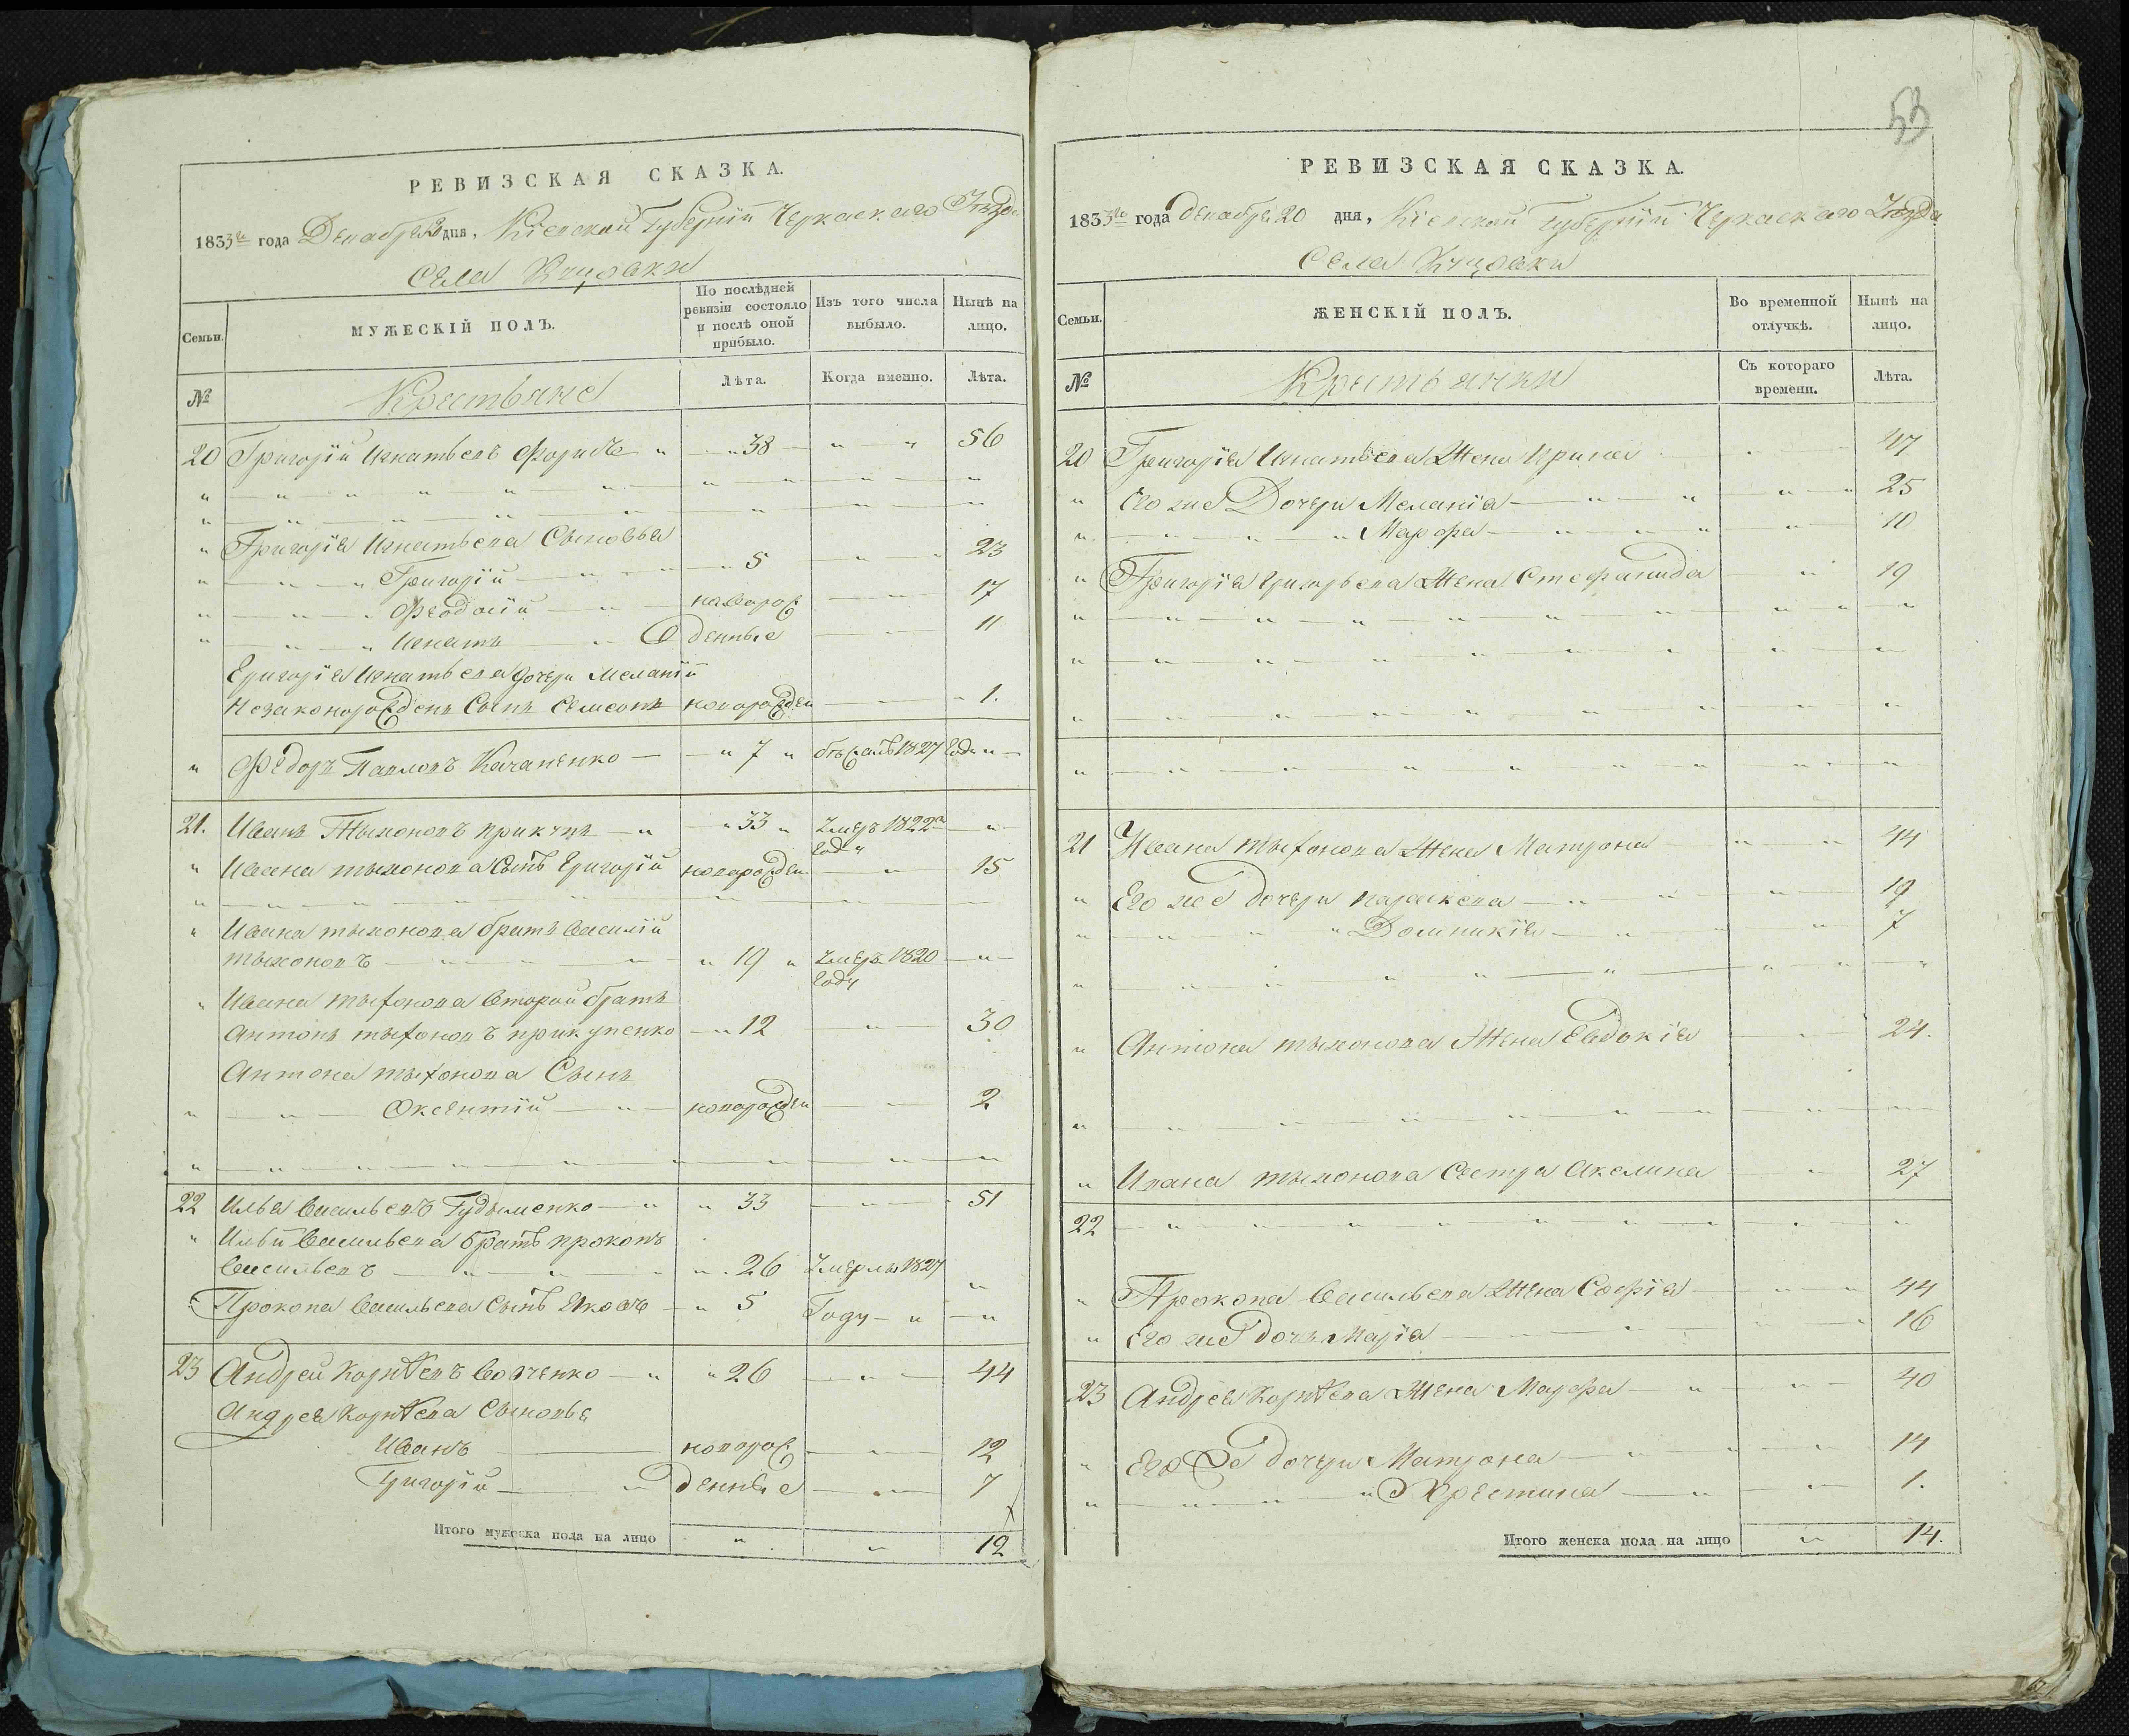 РЕВИЗСКАЯ СКАЗКА.
1833го года Декабря 20 дня, Кіевской Губерніи Черкаскаго Уезда
Села
Семьи.
МУЖЕСКІЙ ПОЛЪ.
По послѣдней ревизіи состояло и послѣ оной прибыло.
Изъ того числа выбыло.
Нынѣ на лицо.
№
Крестьяне
Лѣта.
Когда именно.
Лѣта.
20 Григорій Игнатьевъ „ 38 „ „ 56
„ Григорія Игнатьева Сыновья
„ Григорій „ 5 „ 23
„ Феодосій новорож 17
„ Игнатъ денные 11
Григорія Игнатьева дочери Меланіи
Незаконорожденъ Сынъ Семіонъ новорожден 1.
„ Федоръ Павловъ Качаненко „ 7 „ бѣжалъ 1827 Году „
21. Иванъ Тыхоновъ прикупъ „ „ 33 „ Умеръ 1822 году „
„ Ивана тыхонова Сынъ Григорій новорожден „ 15
„ Ивана тыхонова братъ Василій
тыхоновъ „ 19 „ Умеръ 1820 Году „
„ Ивана тыхонова Второй братъ
Антонъ тыхоновъ прикупенко „ 12 „ 30
Антона тыхонова Сынъ
„ Оксентій „ новорожден 2
22 Илья Васильевъ Гудыменко „ „ 33 „ 51
„ Ильи Васильева братъ прокопъ
Васильевъ „ „ 26 Умерлы 1827 „
„ Прокопа Васильева Сынъ Яковъ „ 5 Году „ „
23 Андрей Корнѣевъ Вовченко „ „ 26 „ 44
Андрея Корнѣева Сыновья
Иванъ новорож „ 12
Григорій „ денные „ 7
Итого мужеска пола на лицо „ „ 12
53
РЕВИЗСКАЯ СКАЗКА.
1833го года Декабря 20 дня, Кіевской Губерніи Черкаскаго Уезда
Села
Семьи.
ЖЕНСКІЙ ПОЛЪ.
Во временной отлучкѣ.
Нынѣ на лицо.
№
Крестьянки
Съ котораго времени.
Лѣта.
20 Григорія Игнатьева Жена Ирина „ 47
„ Его же Дочери Меланія „ „ „ „ 25
„ „ „ „ Марфа „ „ „ „ 10
„ Григорія Григорьева Жена Стефанида „ 19
21 Ивана тыхонова Жена Матрона „ „ 44
„ Его же дочери параскева „ „ „ 19
„ „ „ „ Домникія „ „ „ 7
„ Антона тыхонова Жена Евдокія „ 24.
„ Ивана тыхонова Сестра Акелина „ 27
22 „ „ „ „ „ „ „ „ „
„ Прокопа Васильева Жена Софія „ „ 44
„ Его же дочь Марія „ „ „ „ 16
23 Андрея Корнѣева Жена Марфа „ „ 40
„ Его же дочери Матрона „ „ „ 14
„ „ „ „ Хрестина „ „ 1.
Итого женска пола на лицо „ 14.